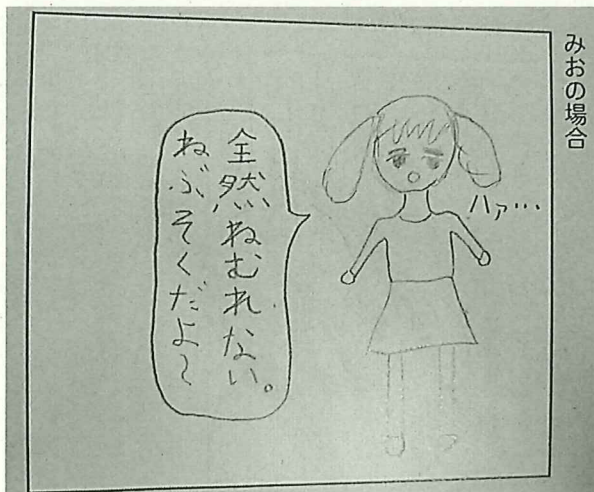 みおの場合
ハァ…
全然ねむれない。
ねぶそくだよ～